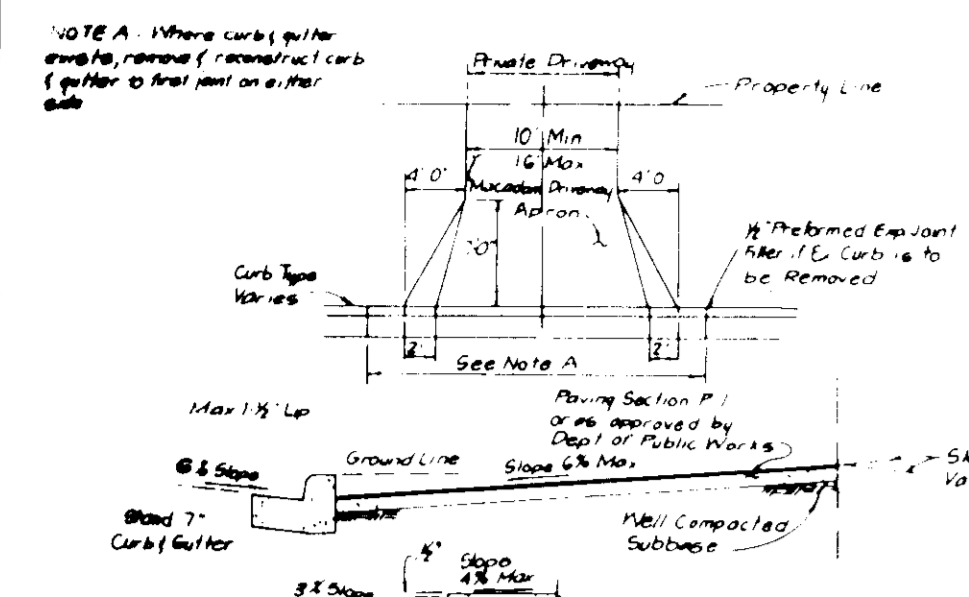 NOTE A. Where curb & gutter
exists, remove & reconstruct curb
& gutter to first joint on either
side
Private Driveway
Property Line
10' Min
16' Max
4'0"
Macadam Driveway
4'0
Apron
½" Preformed Exp Joint
Filler if Ex Curb is to
be Removed
Curb Type
Varies
2'
2'
See Note A
Max 1-½" Lip
Paving Section P-1
or as approved by
Dept of Public Works
6% Slope
Ground Line
Slope 6% Max
Stand 7"
Curb & Gutter
Well Compacted
Subbase
½"
Slope
4% Max
3% Slope